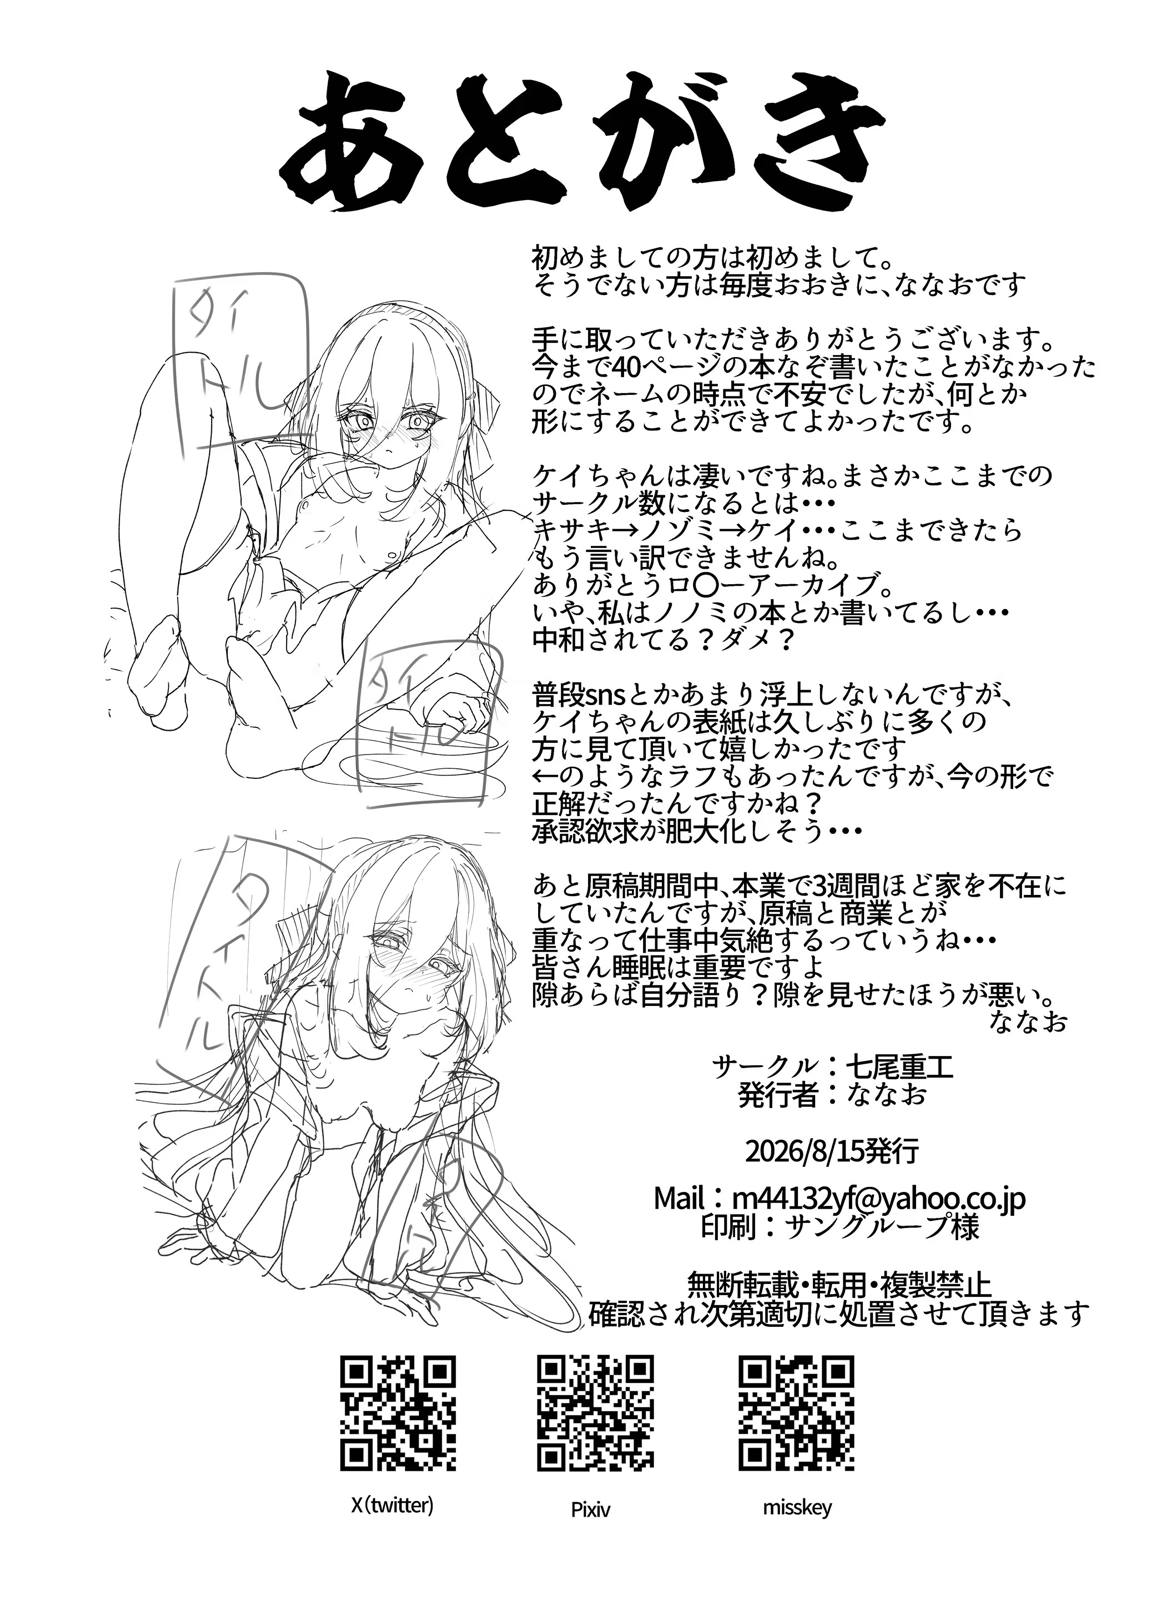 あとがき
初めましての方は初めまして。
そうでない方は毎度おおきに、ななおです
手に取っていただきありがとうございます。
今まで40ページの本なぞ書いたことがなかった
のでネームの時点で不安でしたが、何とか
形にすることができてよかったです。
ケイちゃんは凄いですね。まさかここまでの
サークル数になるとは・・・
キサキ→ノゾミ→ケイ・・・ここまできたら
もう言い訳できませんね。
ありがとうロ〇ーアーカイブ。
いや、私はノノミの本とか書いてるし・・・
中和されてる？ダメ？
普段snsとかあまり浮上しないんですが、
ケイちゃんの表紙は久しぶりに多くの
方に見て頂いて嬉しかったです
←のようなラフもあったんですが、今の形で
正解だったんですかね？
承認欲求が肥大化しそう・・・
あと原稿期間中、本業で3週間ほど家を不在に
していたんですが、原稿と商業とが
重なって仕事中気絶するっていうね・・・
皆さん睡眠は重要ですよ
隙あらば自分語り？隙を見せたほうが悪い。
ななお
サークル：七尾重工
発行者：ななお
2026/8/15発行
Mail：m44132yf@yahoo.co.jp
印刷：サングループ様
無断転載・転用・複製禁止
確認され次第適切に処置させて頂きます
タイ
トル
タイ
トル
タイトル
X(twitter)
Pixiv
misskey